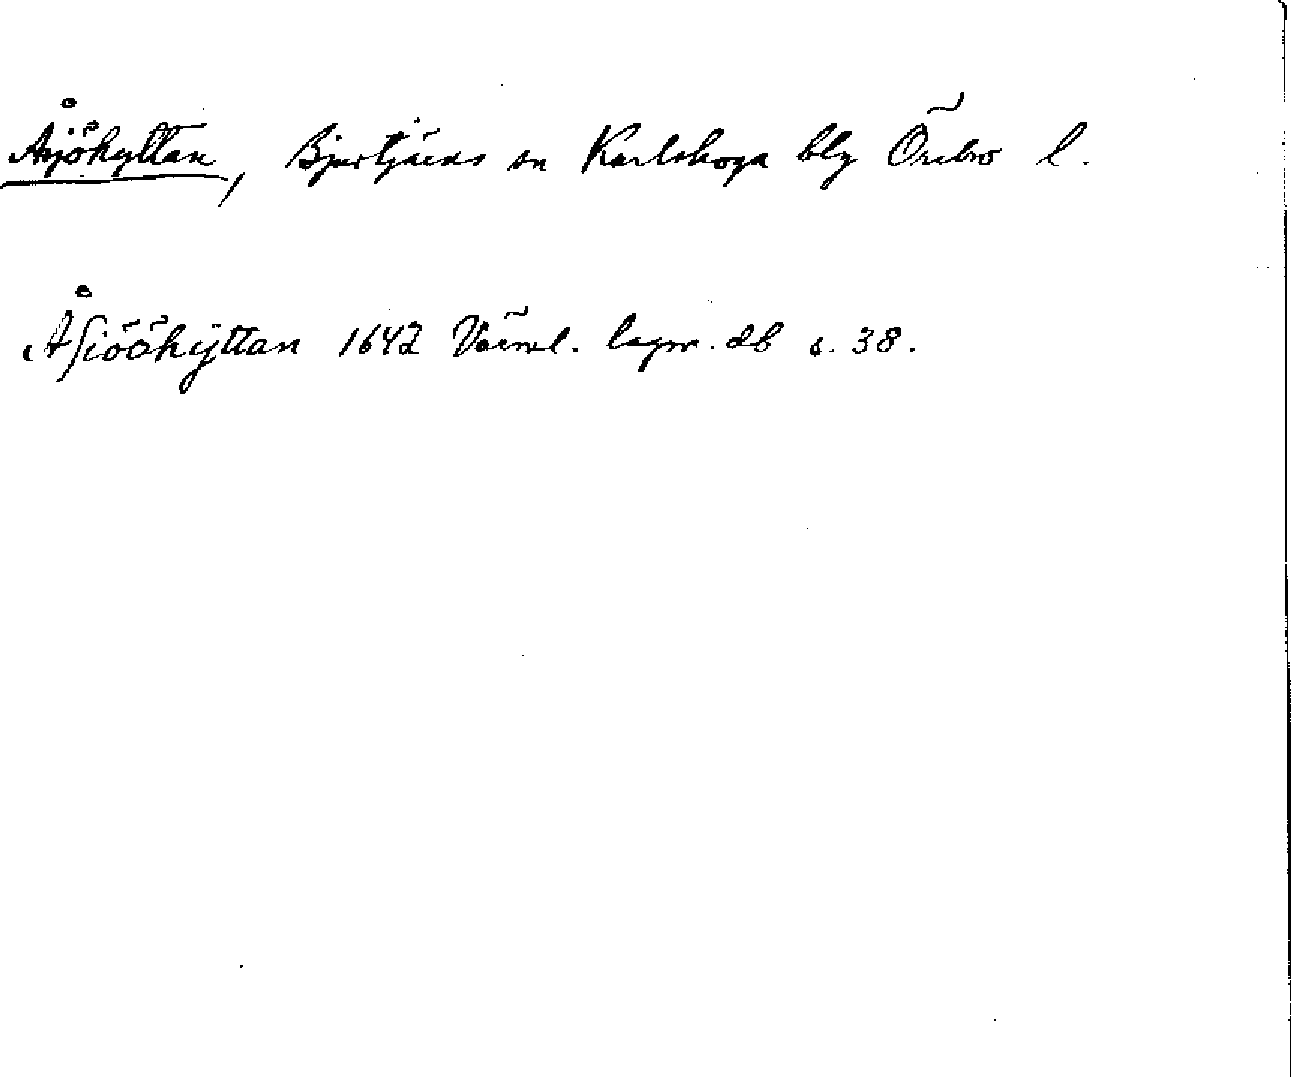 Åsjöhyttan, Bjurtjärns sn Karlskoga blg Örebro l.
Åsiööhÿttan 1642 Värml. lagm. db s. 38.